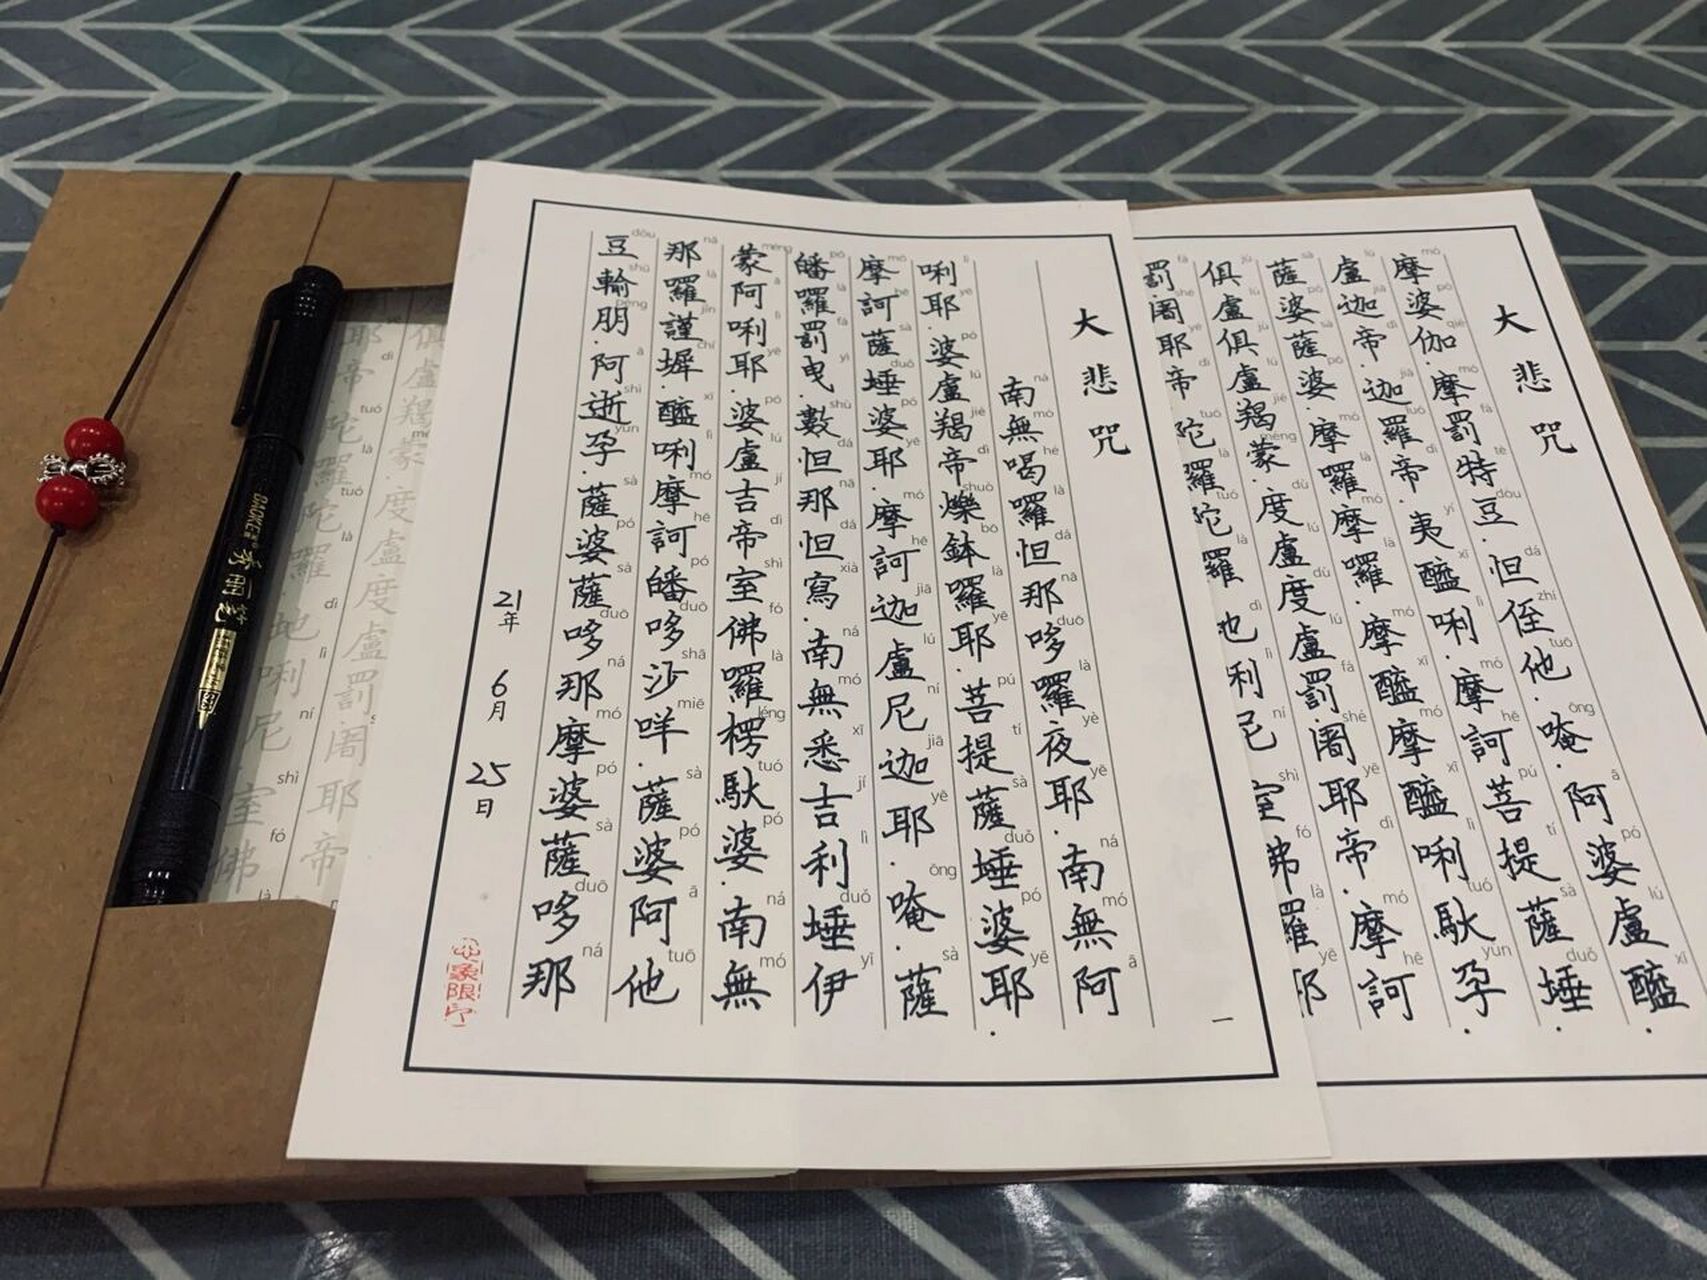 大悲咒
南無喝囉怛那哆囉夜耶.南無阿
唎耶.婆盧羯帝爍鉢羅耶.菩提薩埵婆耶.
摩訶薩埵婆耶.摩訶迦盧尼迦耶.唵.薩
皤囉罰曳.數怛那怛寫.南無悉吉利埵伊
蒙阿唎耶.婆盧吉帝室佛羅楞馱婆.南無
那羅謹墀.醯唎摩訶皤哆沙咩.薩婆阿他
豆輸朋.阿逝孕.薩婆薩哆那摩婆薩哆那
21年 6月 25日
一
大悲咒
摩婆伽.摩罰特豆.怛侄他.唵.阿婆盧醯.
盧迦帝.迦羅帝.夷醯唎.摩訶菩提薩埵.
薩婆薩婆.摩囉摩囉.摩醯摩醯唎馱孕.
俱盧俱盧羯蒙.度盧度盧罰闍耶帝.摩訶
罰闍耶帝.陀羅陀羅.地利尼.室佛羅耶
俱盧羯蒙.度盧度盧罰闍耶帝
耶帝.陀羅陀羅.地唎尼.室佛
BAOKE 秀丽笔